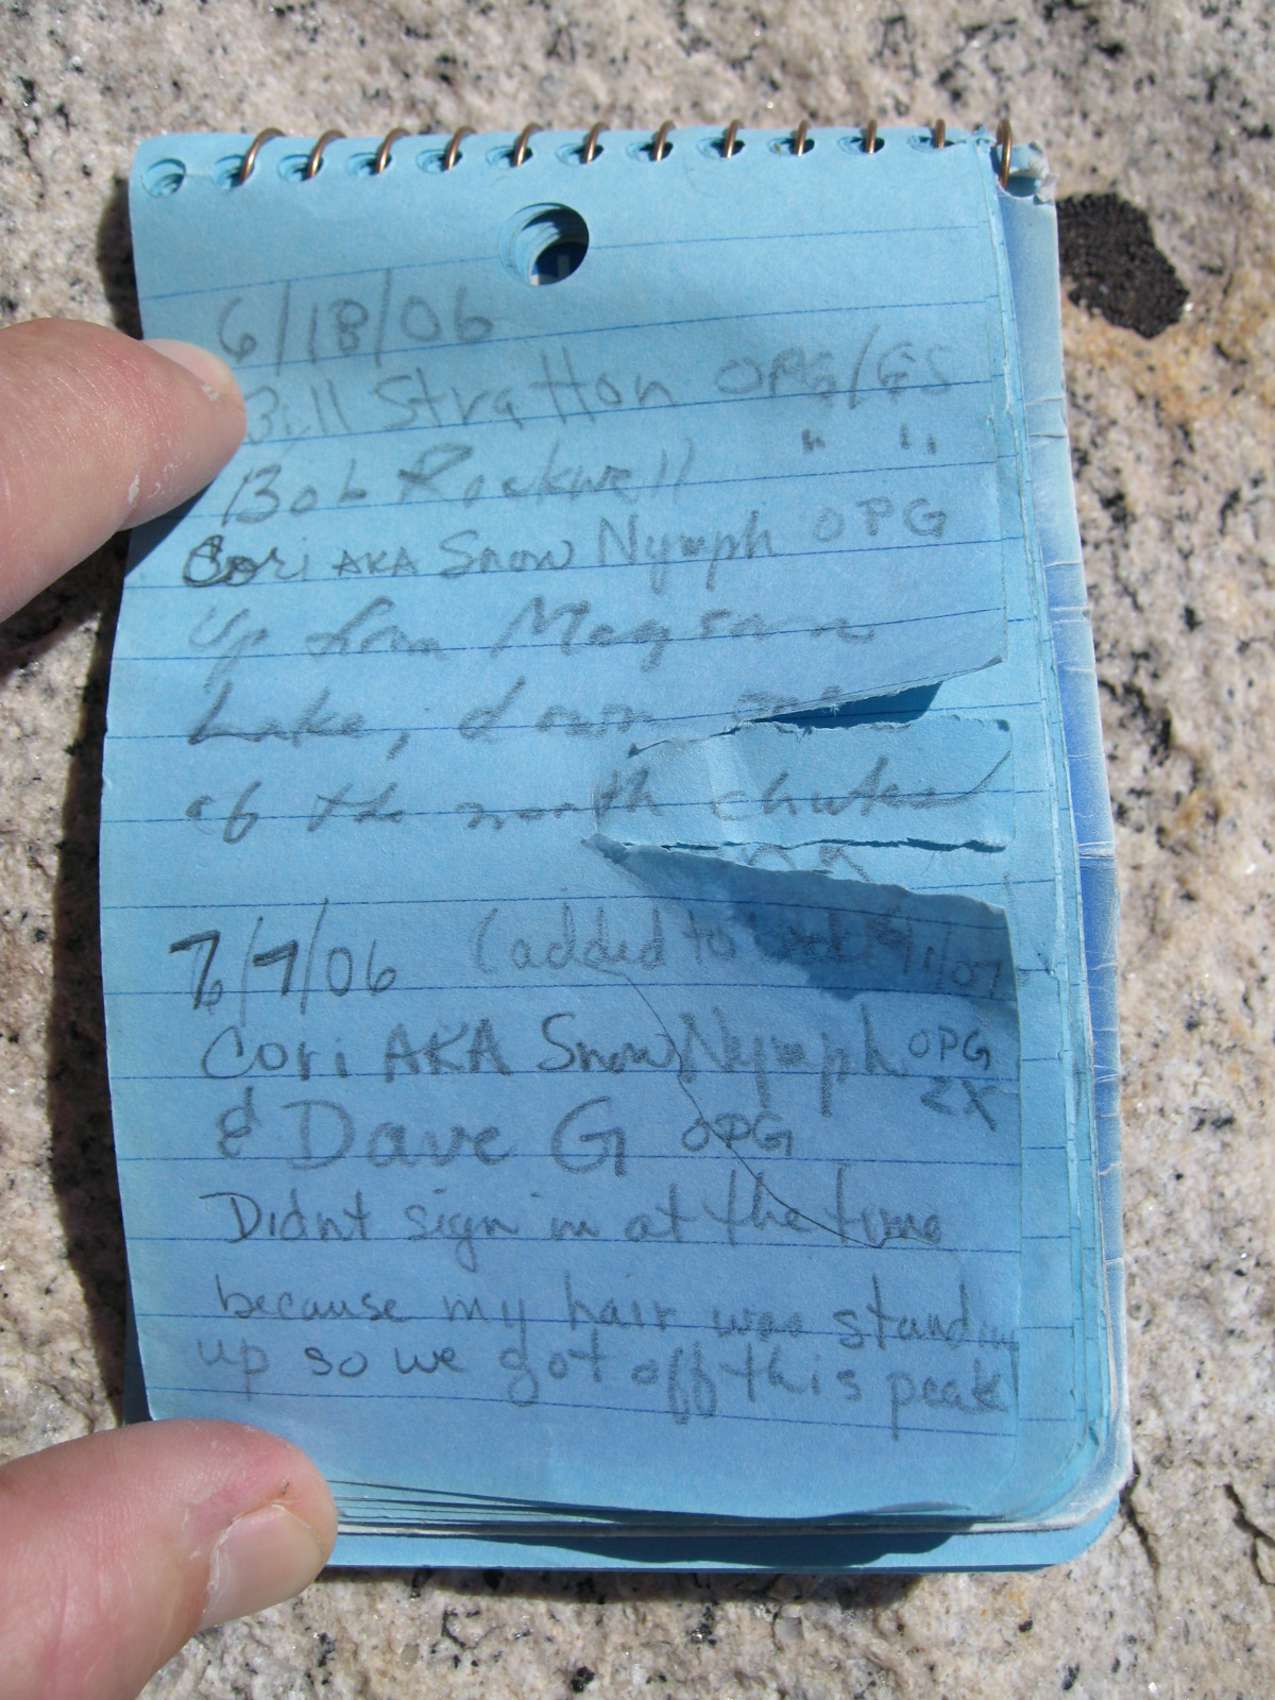 6/18/06
Bill Stratton OPG/GS
Bob Rockwell " "
Cori AKA Snow Nymph OPG
Up from
Lake, down one
of the north chutes
7/7/06 (added to 9/1/07
Cori AKA Snow Nymph OPG
2X
& Dave G OPG
Didnt sign in at the time
because my hair was standing
up so we got off this peak